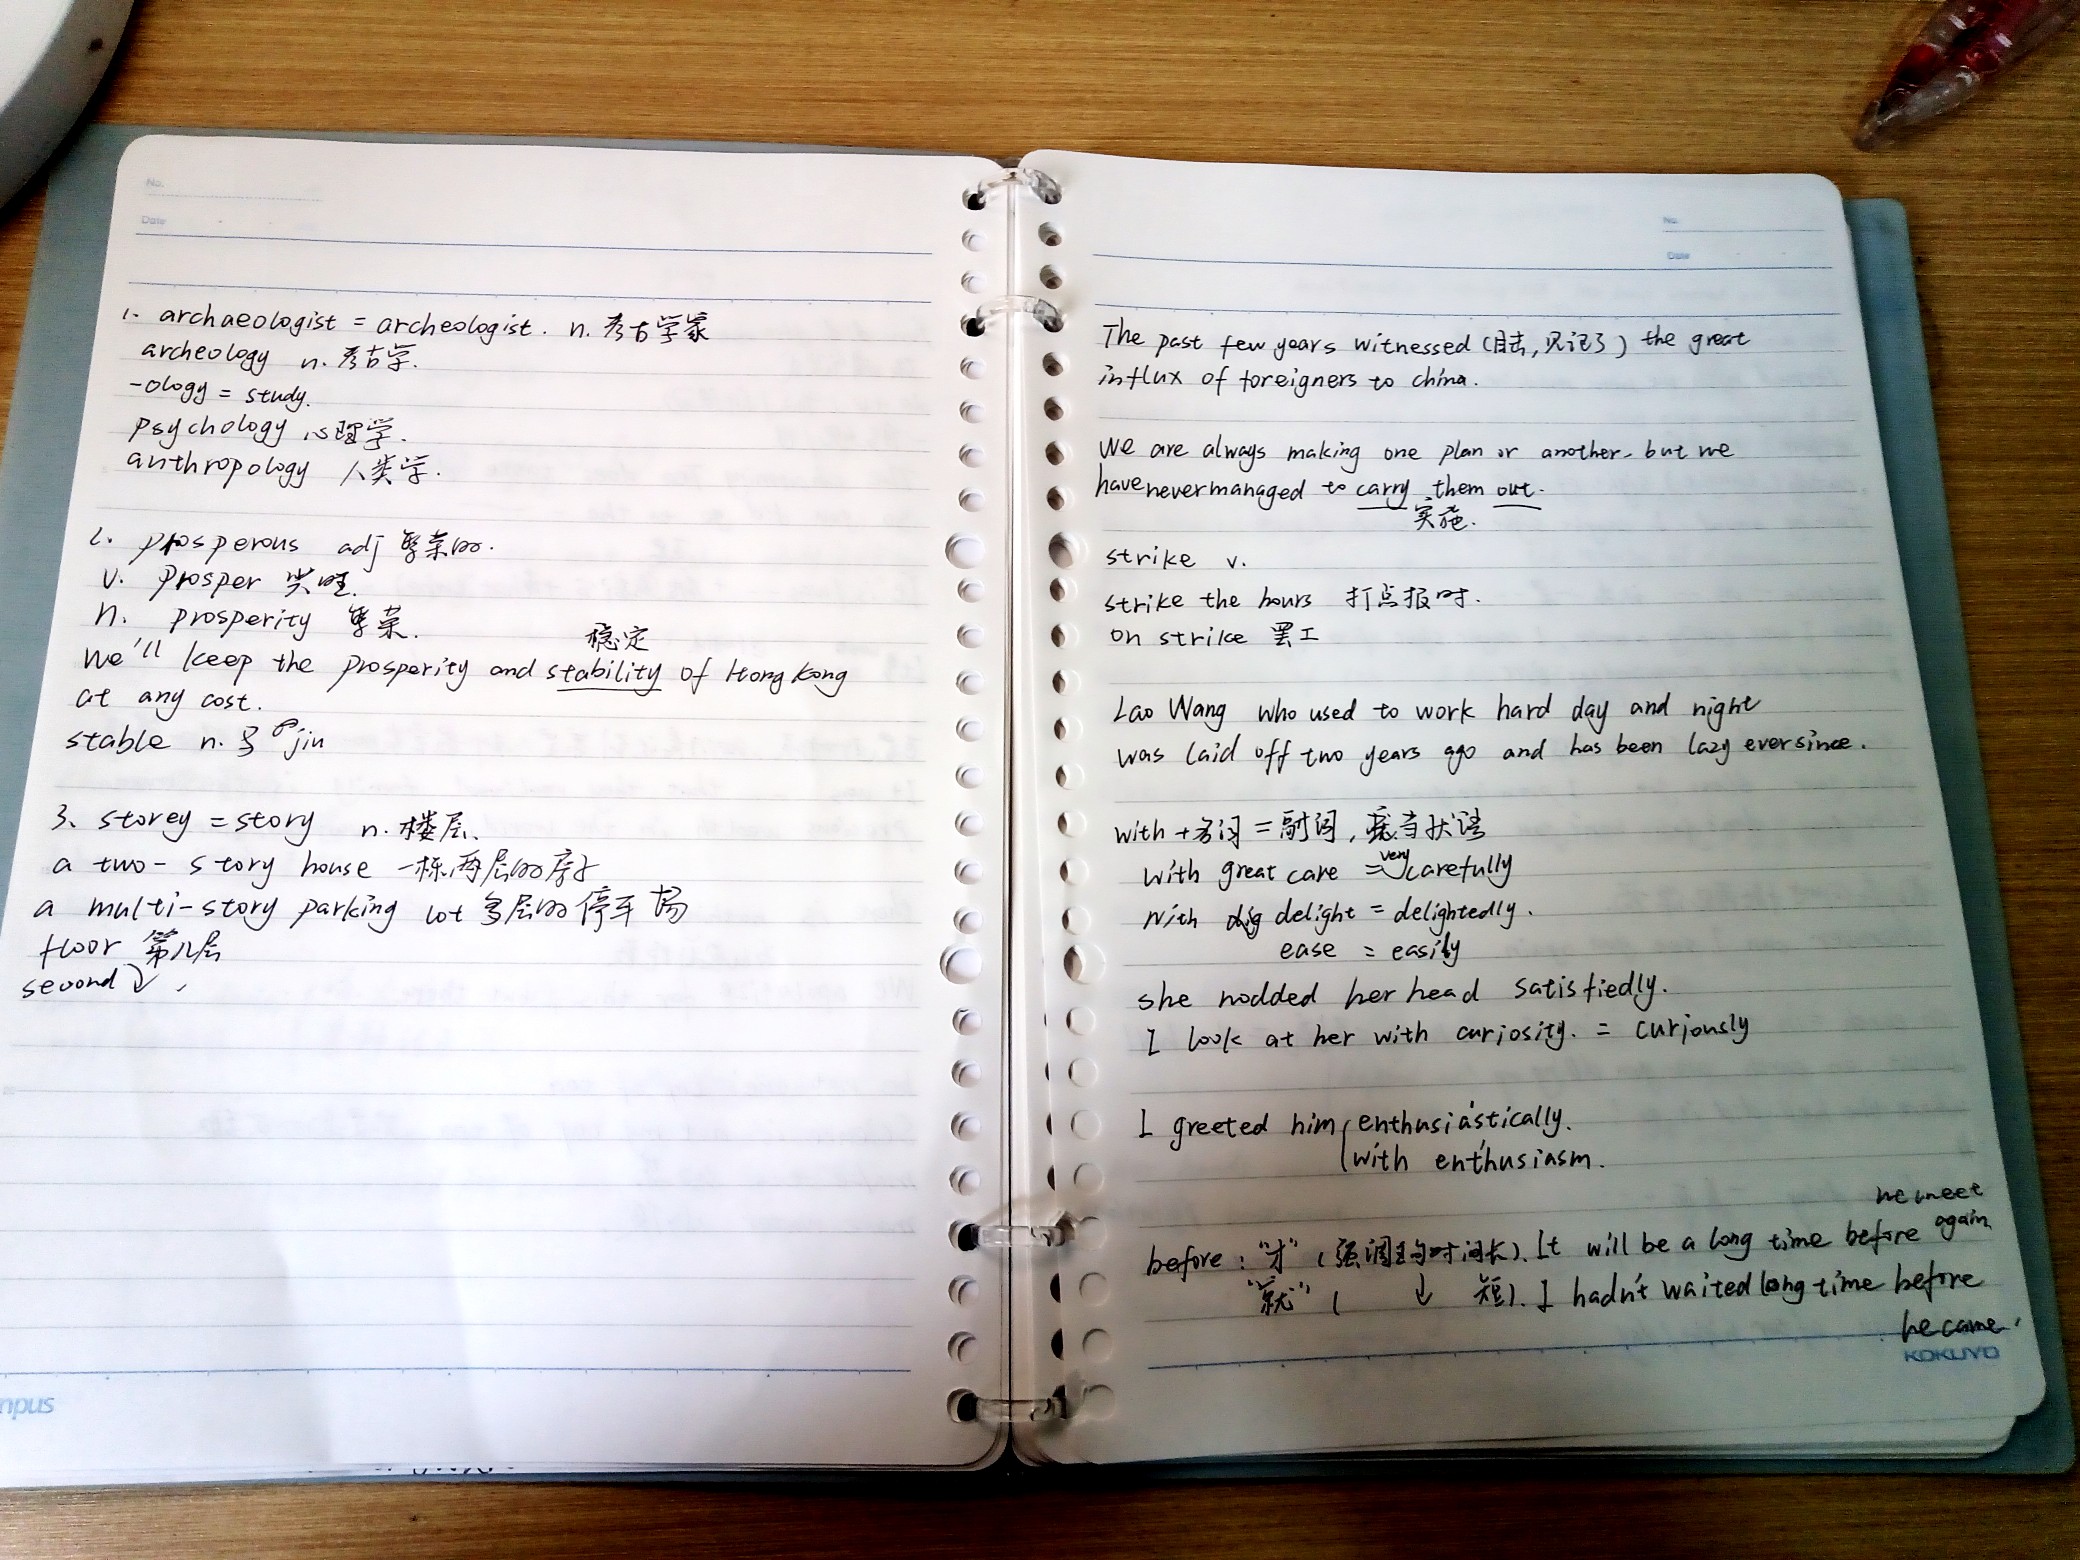 No.
Date
1. archaeologist = archeologist. n. 考古学家
archeology n. 考古学.
-ology = study.
psychology 心理学.
anthropology 人类学.
2. prosperous adj 繁荣的.
v. prosper 兴旺.
n. prosperity 繁荣.
稳定
We'll keep the prosperity and stability of Hong Kong
at any cost.
stable n. 马 jiu
3、storey = story n. 楼层、
a two-story house 一栋两层的房子
a multi-story parking lot 多层的停车场
floor 第几层
second
mpus
No.
Date
The past few years witnessed (目击, 见证了) the great
influx of foreigners to china.
We are always making one plan or another. but we
have never managed to carry them out.
实施.
strike v.
strike the hours 打点报时.
on strike 罢工
Lao Wang who used to work hard day and night
was laid off two years ago and has been lazy ever since.
with + 名词 = 副词, 当状语
with great care = very carefully
with delight = delightedly.
ease = easily
she nodded her head satisfiedly.
I look at her with curiosity. = curiously
I greeted him enthusiastically.
with enthusiasm.
we meet
before: "才" (强调时间长). It will be a long time before again
"就" ( ↓ 短). I hadn't waited long time before
he came.
KOKUYO